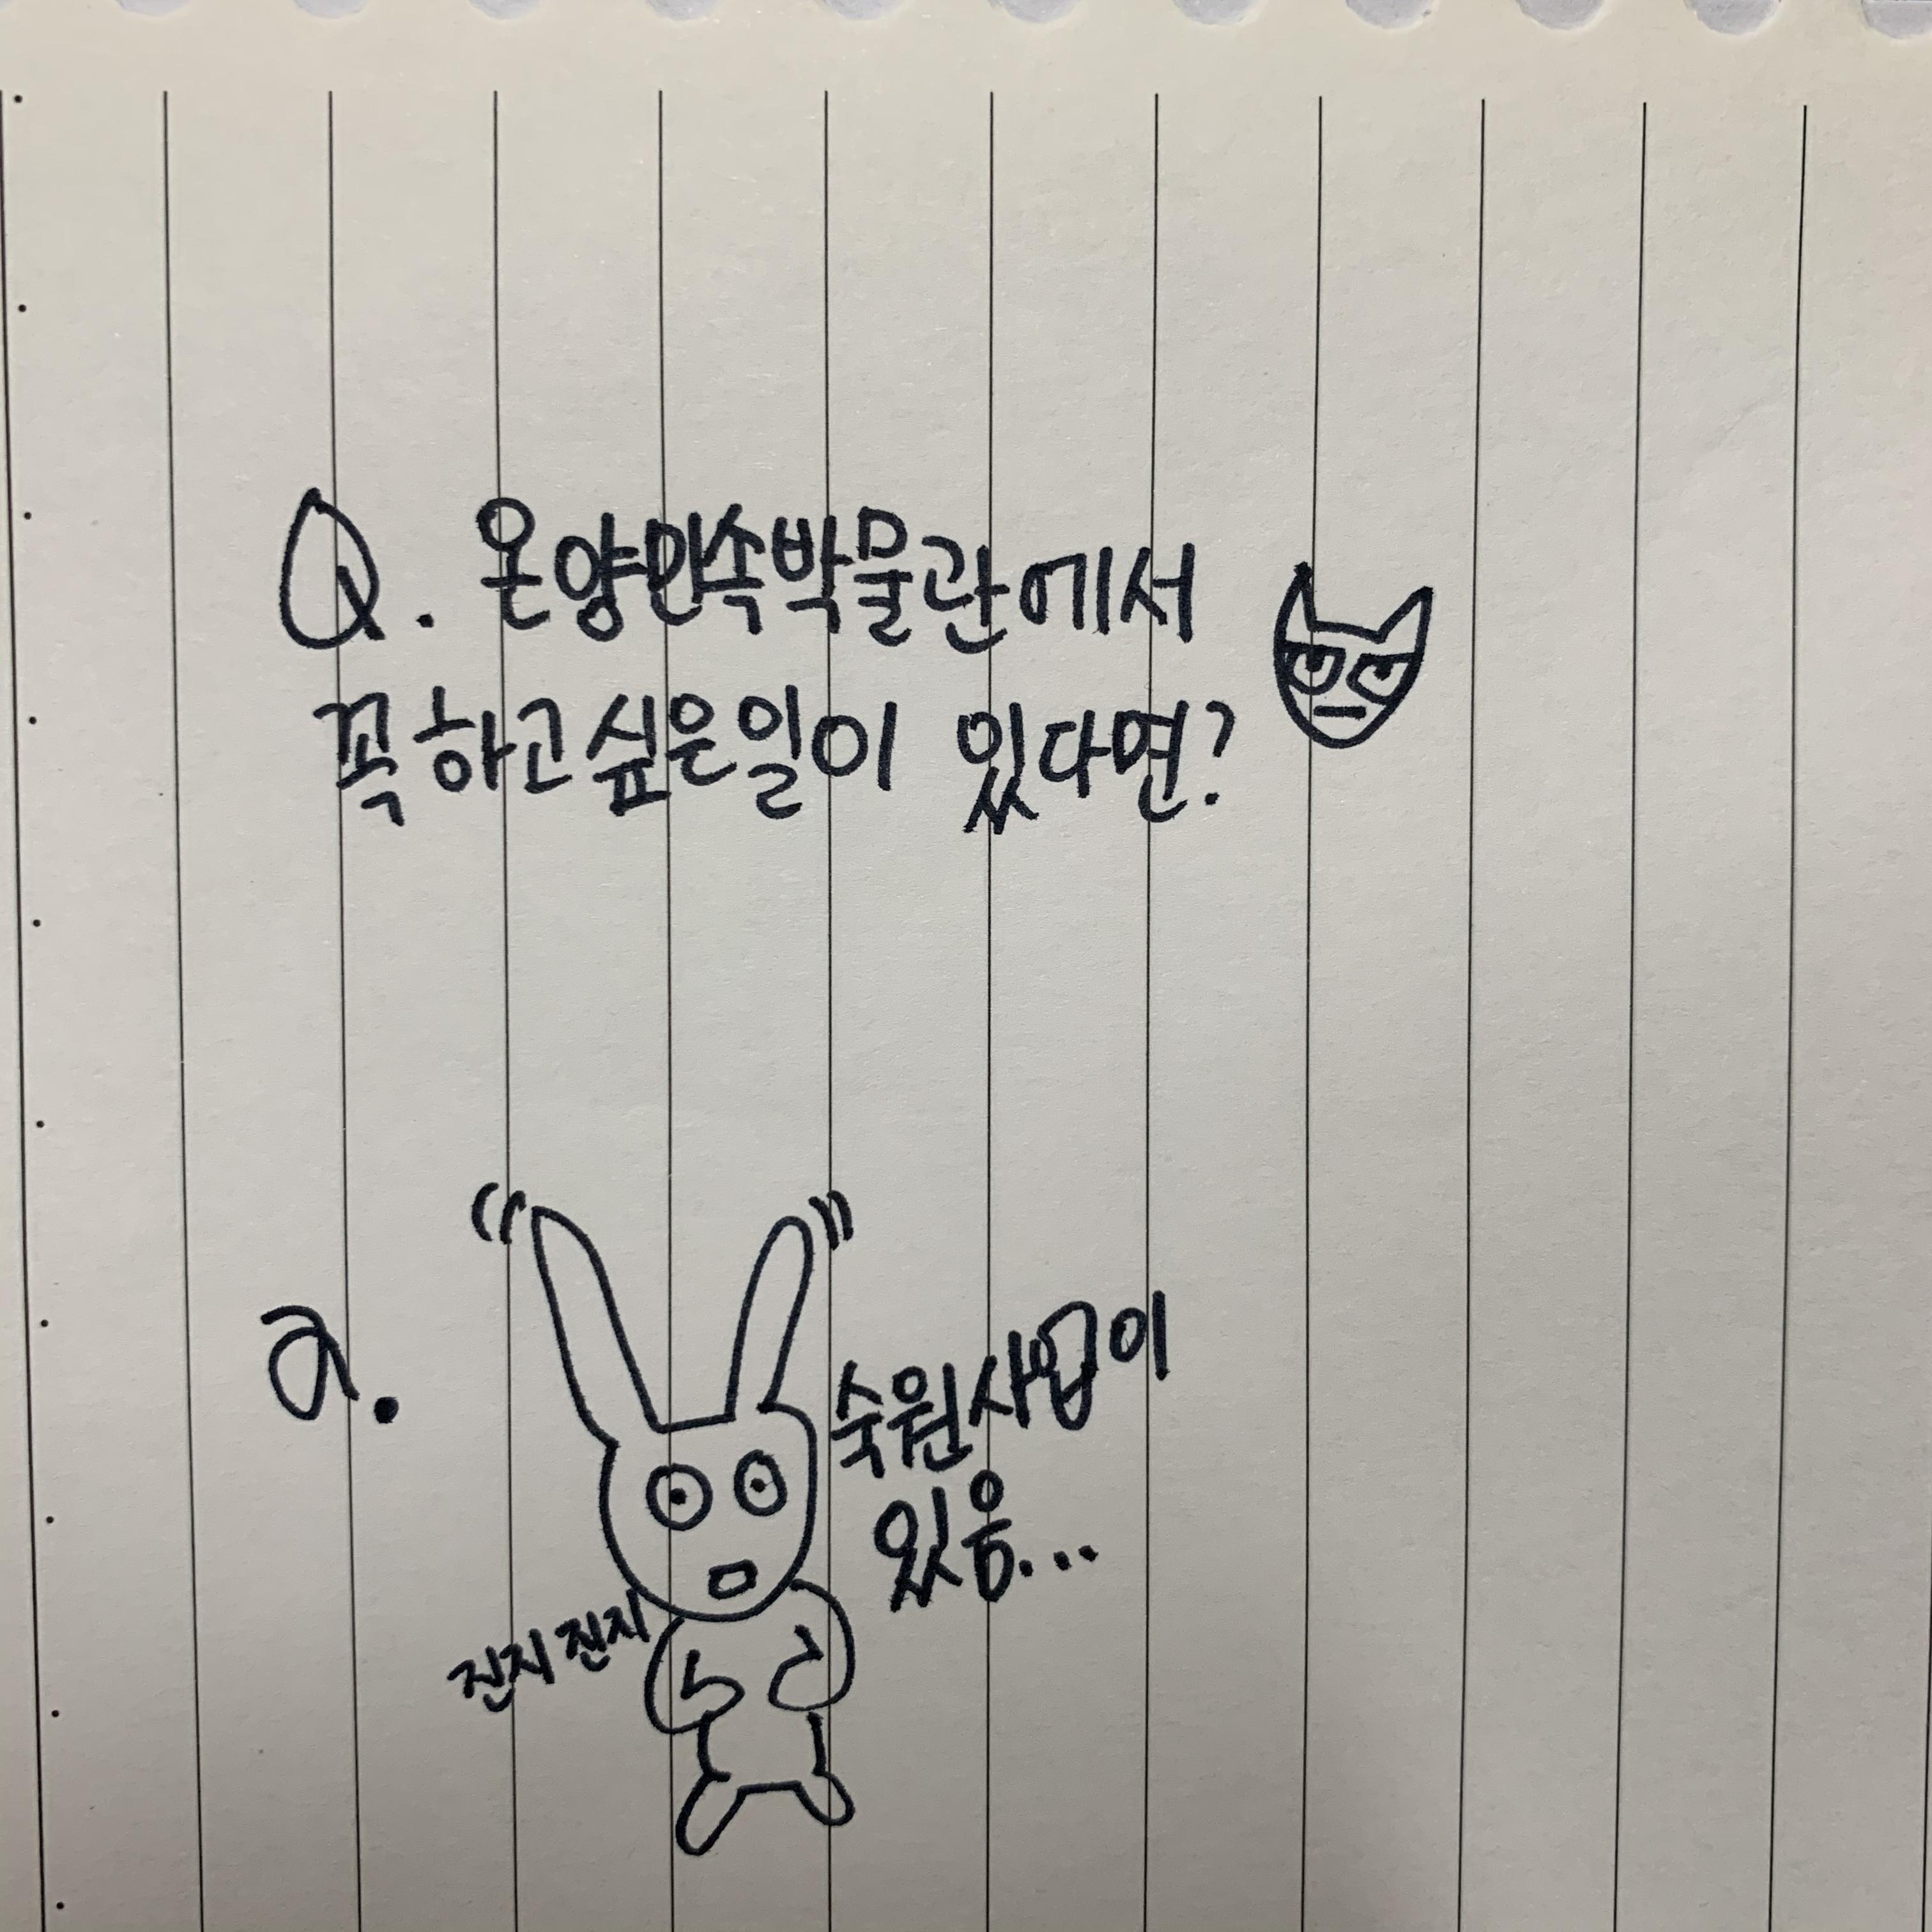 Q. 온양민속박물관에서
꼭 하고 싶은 일이 있다면?
a.
숙원사업이
있음...
진지 진지